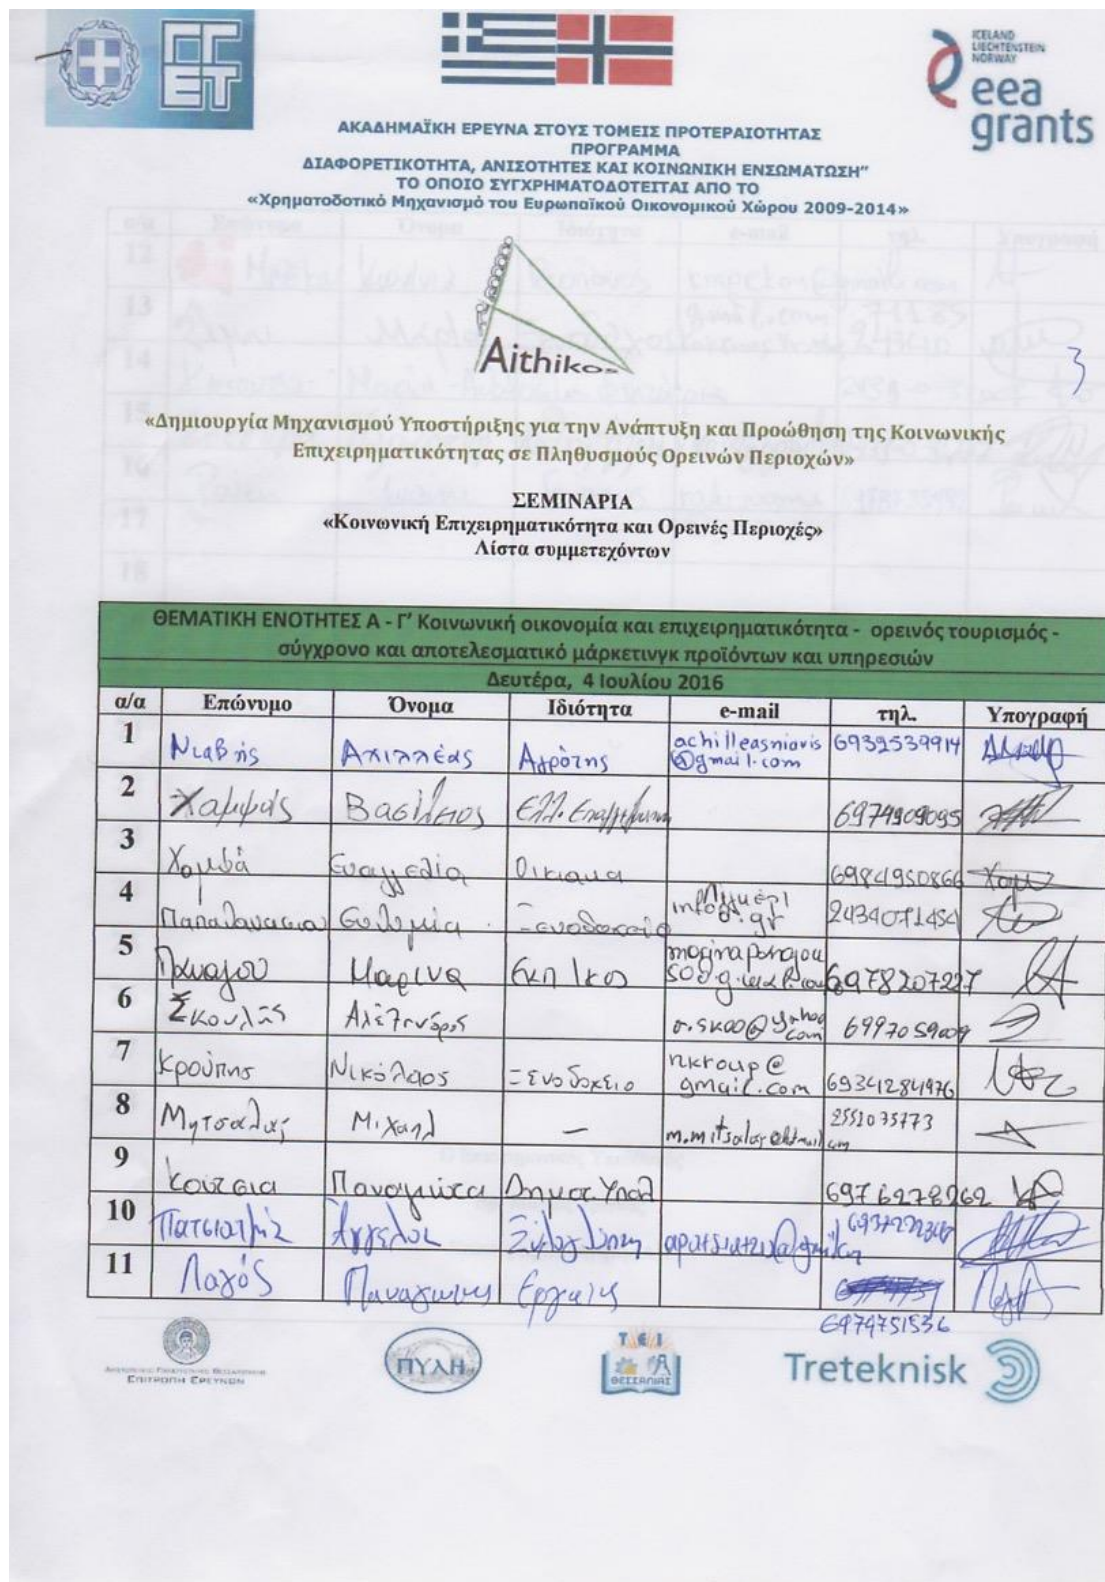 ΓΓ
ΕΤ
ICELAND
LIECHTENSTEIN
NORWAY
eea
grants
ΑΚΑΔΗΜΑΪΚΗ ΕΡΕΥΝΑ ΣΤΟΥΣ ΤΟΜΕΙΣ ΠΡΟΤΕΡΑΙΟΤΗΤΑΣ
ΠΡΟΓΡΑΜΜΑ
ΔΙΑΦΟΡΕΤΙΚΟΤΗΤΑ, ΑΝΙΣΟΤΗΤΕΣ ΚΑΙ ΚΟΙΝΩΝΙΚΗ ΕΝΣΩΜΑΤΩΣΗ”
ΤΟ ΟΠΟΙΟ ΣΥΓΧΡΗΜΑΤΟΔΟΤΕΙΤΑΙ ΑΠΟ ΤΟ
«Χρηματοδοτικό Μηχανισμό του Ευρωπαϊκού Οικονομικού Χώρου 2009-2014»
Aithikos
3
«Δημιουργία Μηχανισμού Υποστήριξης για την Ανάπτυξη και Προώθηση της Κοινωνικής
Επιχειρηματικότητας σε Πληθυσμούς Ορεινών Περιοχών»
ΣΕΜΙΝΑΡΙΑ
«Κοινωνική Επιχειρηματικότητα και Ορεινές Περιοχές»
Λίστα συμμετεχόντων
ΘΕΜΑΤΙΚΗ ΕΝΟΤΗΤΕΣ Α - Γ’ Κοινωνική οικονομία και επιχειρηματικότητα - ορεινός τουρισμός -
σύγχρονο και αποτελεσματικό μάρκετινγκ προϊόντων και υπηρεσιών
Δευτέρα, 4 Ιουλίου 2016
α/α Επώνυμο Όνομα Ιδιότητα e-mail τηλ. Υπογραφή
1 Νιαβής Αχιλλέας Αγρότης achilleasniavis @gmail.com 6932539914
2 Χαμψάς Βασίλειος 6974909095
3 Ευαγγελία Οικιακα 6984950866
4 Παπαθανασιου Ευθυμία Ξενοδοχείο 2434071454
5 Παναγου Μαρίνα Εκπ/κος 6978207227
6 Σκουλάς Αλέξανδρος a.skoo@yahoo.com 6997059009
7 Κρούπης Νικόλαος Ξενοδοχείο nkroup@ gmail.com 69341284976
8 Μητσαλας Μιχαηλ — 2551035773
9 Κούτσια Παναγιώτα Δημοτ. Υπαλ 6976278262
10 Άγγελος
11 Λαγός Παναγιώτης Εργάτης
6974751536
ΑΡΙΣΤΟΤΕΛΕΙΟ ΠΑΝΕΠΙΣΤΗΜΙΟ ΘΕΣΣΑΛΟΝΙΚΗΣ
ΕΠΙΤΡΟΠΗ ΕΡΕΥΝΩΝ
ΠΥΛΗ
Τ Ε Ι
ΘΕΣΣΑΛΙΑΣ
Treteknisk